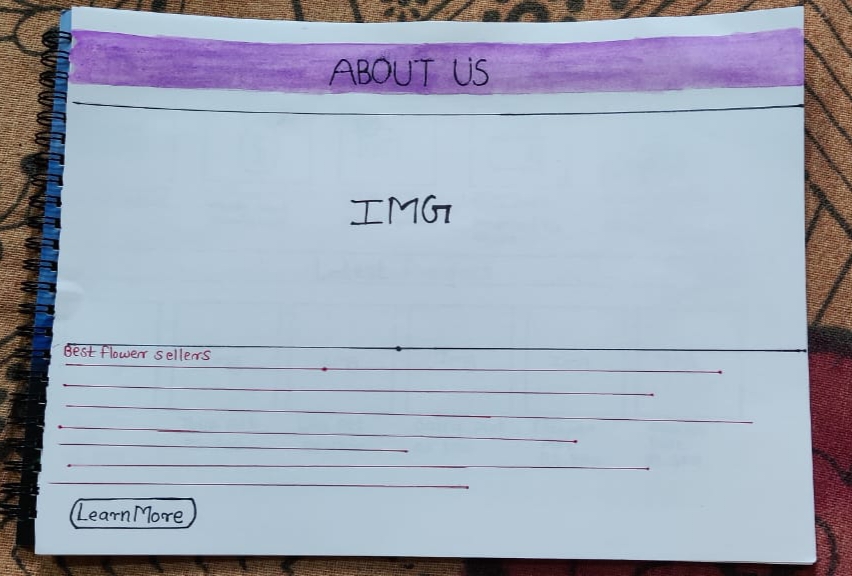 ABOUT US
IMG
Best flower sellers
Learn More